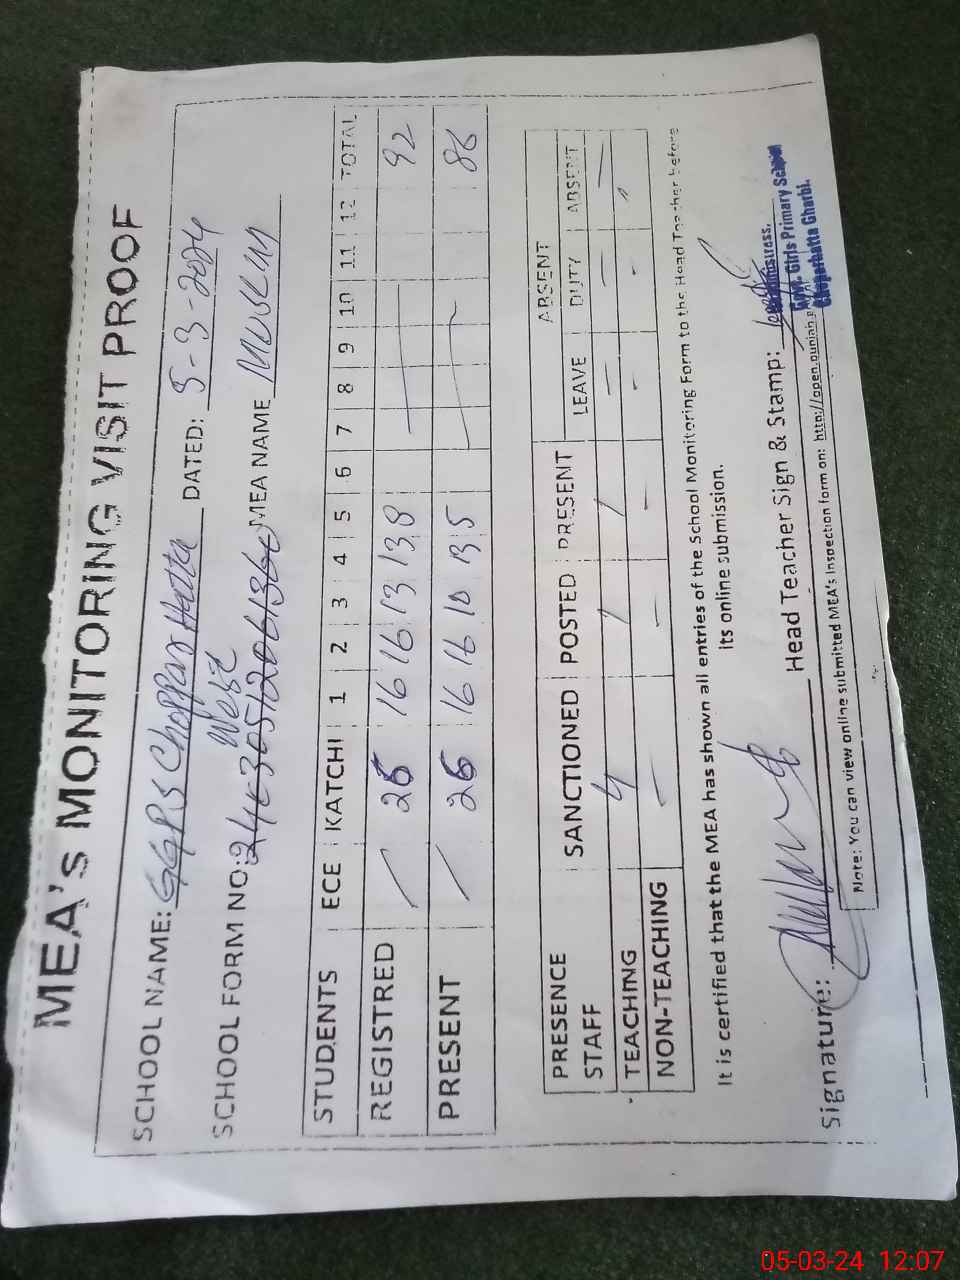 MEA's MONITORING VISIT PROOF
SCHOOL NAME: GGPS Chopparhatta DATED: 5-3-2024
West
SCHOOL FORM NO: MEA NAME MUSLIM
STUDENTS ECE KATCHI 1 2 3 4 5 6 7 8 9 10 11 12 TOTAL
REGISTRED 26 16 16 13 13 8 92
PRESENT 26 16 16 10 13 5 86
PRESENCE SANCTIONED POSTED PRESENT ABSENT
STAFF LEAVE DUTY ABSENT
TEACHING 4 1 1 — — —
NON-TEACHING — — — — —
It is certified that the MEA has shown all entries of the School Monitoring Form to the Head Teacher before
its online submission.
Signature: Head Teacher Sign & Stamp:
Headmistress,
Govt. Girls Primary School
Choparhatta Gharbi.
Note: You can view online submitted MEA's Inspection form on: http://open.punjab.g
05-03-24 12:07